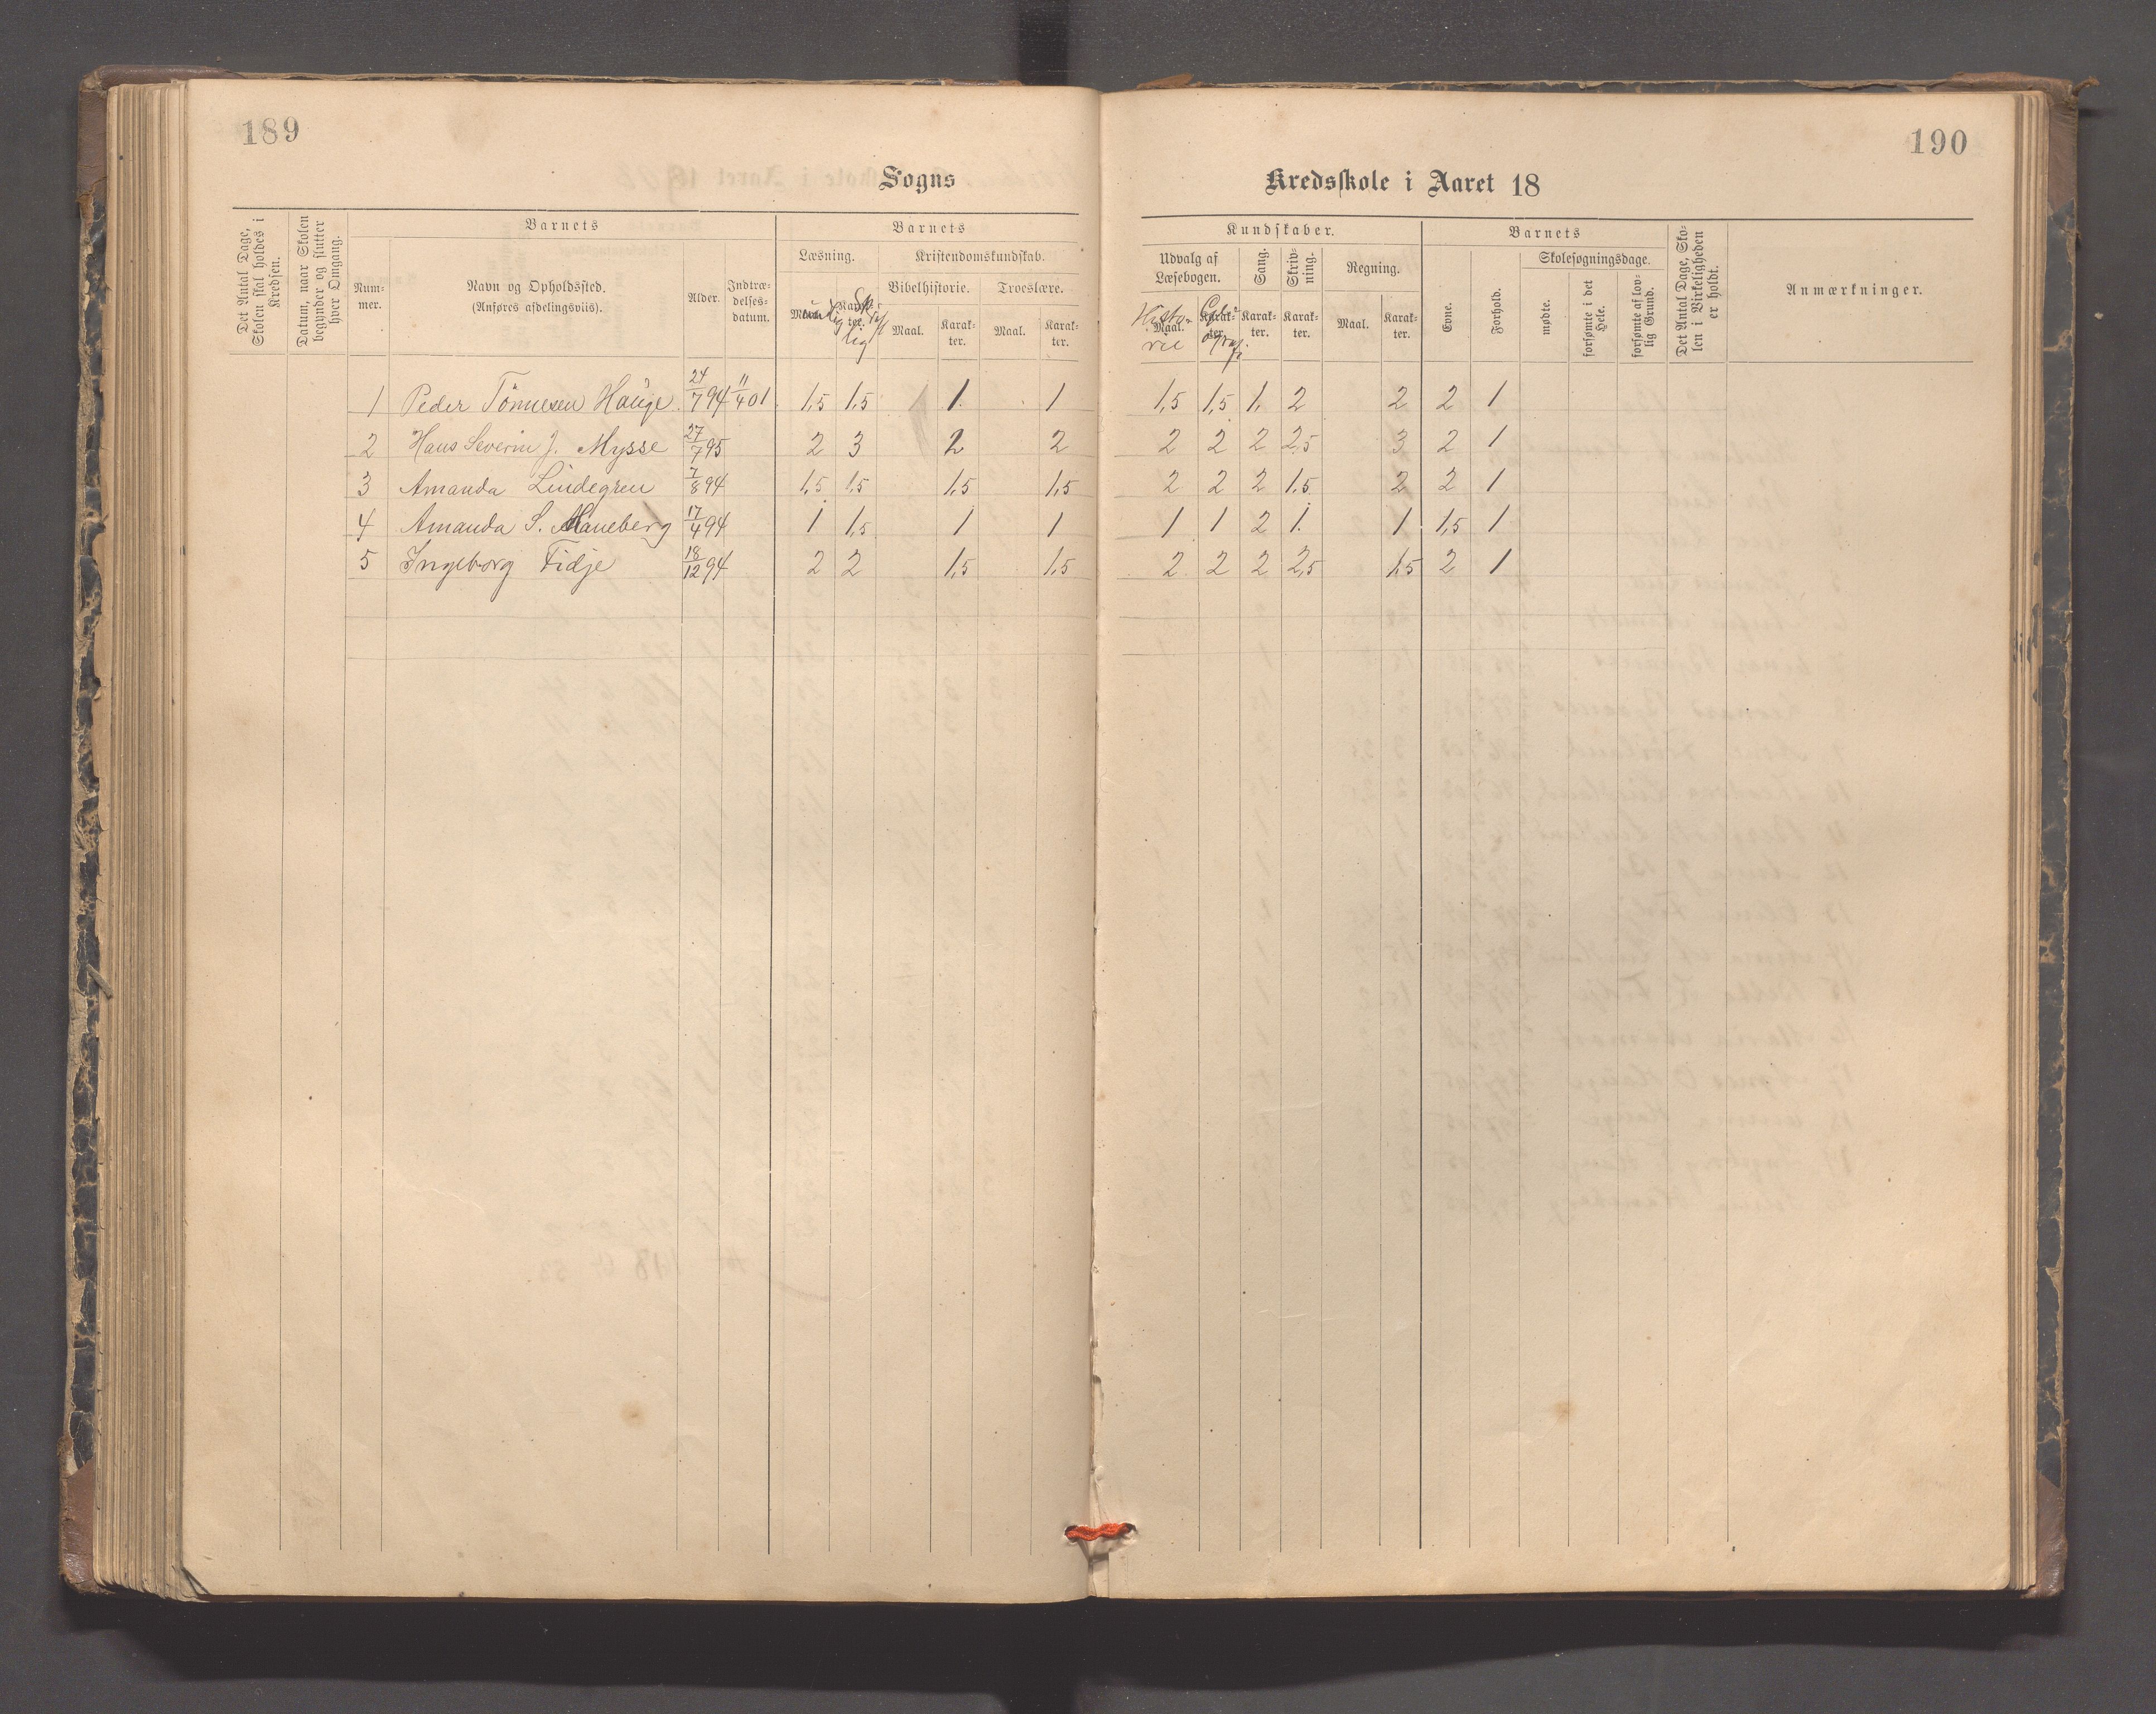 189
Sogns
Det Antal Dage, Skolen skal holdes i Kredsen.
Datum, naar Skolen begynder og slutter hver Omgang.
Barnets
Num-
mer.
Navn og Opholdssted.
(Anføres afdelingsviis).
Alder.
Indtræ-
delses-
datum.
Barnets
Læsning.
Kristendomskundskab.
Bibelhistorie.
Troeslære.
Mundlig
Skrift
lig
Maal.
Karak-
ter.
Maal.
Karak-
ter.
1 Peder Tönnesen Hauge. 24/7 94 11/4 01 1,5 1,5 1. 1
2 Hans Severin J. Mysse 27/7 95 2 3 2 2
3 Amanda Lindegren 7/8 94 1,5 1,5 1,5 1,5
4 Amanda S. Haneberg 17/4 94 1 1,5 1 1
5 Ingeborg Fidje 18/12 94 2 2 1,5 1,5
190
Kredsskole i Aaret 18
Kundskaber.
Udvalg af
Læsebogen.
Sang.
Skriv-
ning.
Regning.
Histo-
rie
Maal.
Karak-
ter.
Karak-
ter.
Karak-
ter.
Maal.
Karak-
ter.
Barnets
Evne.
Forhold.
Skolesøgningsdage.
mødte.
forsømte i det Hele.
forsømte af lov-
lig Grund.
Det Antal Dage, Sko-
len i Virkeligheden
er holdt.
Anmærkninger.
1,5 1,5 1, 2 2 2 1
2 2 2 2,5 3 2 1
2 2 2 1,5 2 2 1
1 1 2 1. 1 1,5 1
2 2 2 2,5 1,5 2 1